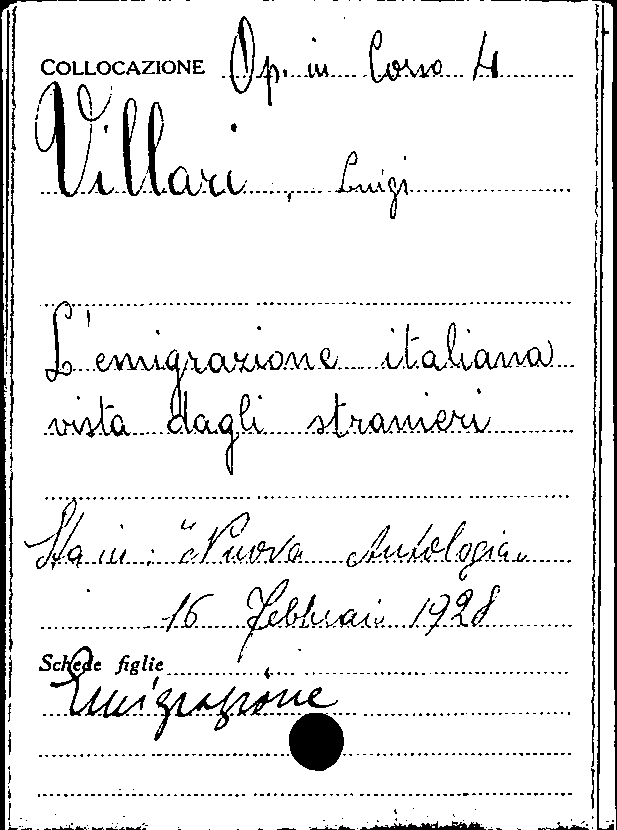 COLLOCAZIONE Op. in Corso 4
Villari, Luigi
L'emigrazione italiana
vista dagli stranieri
Sta in: "Nuova Antologia"
16 Febbraio 1928
Schede figlie
Emigrazione